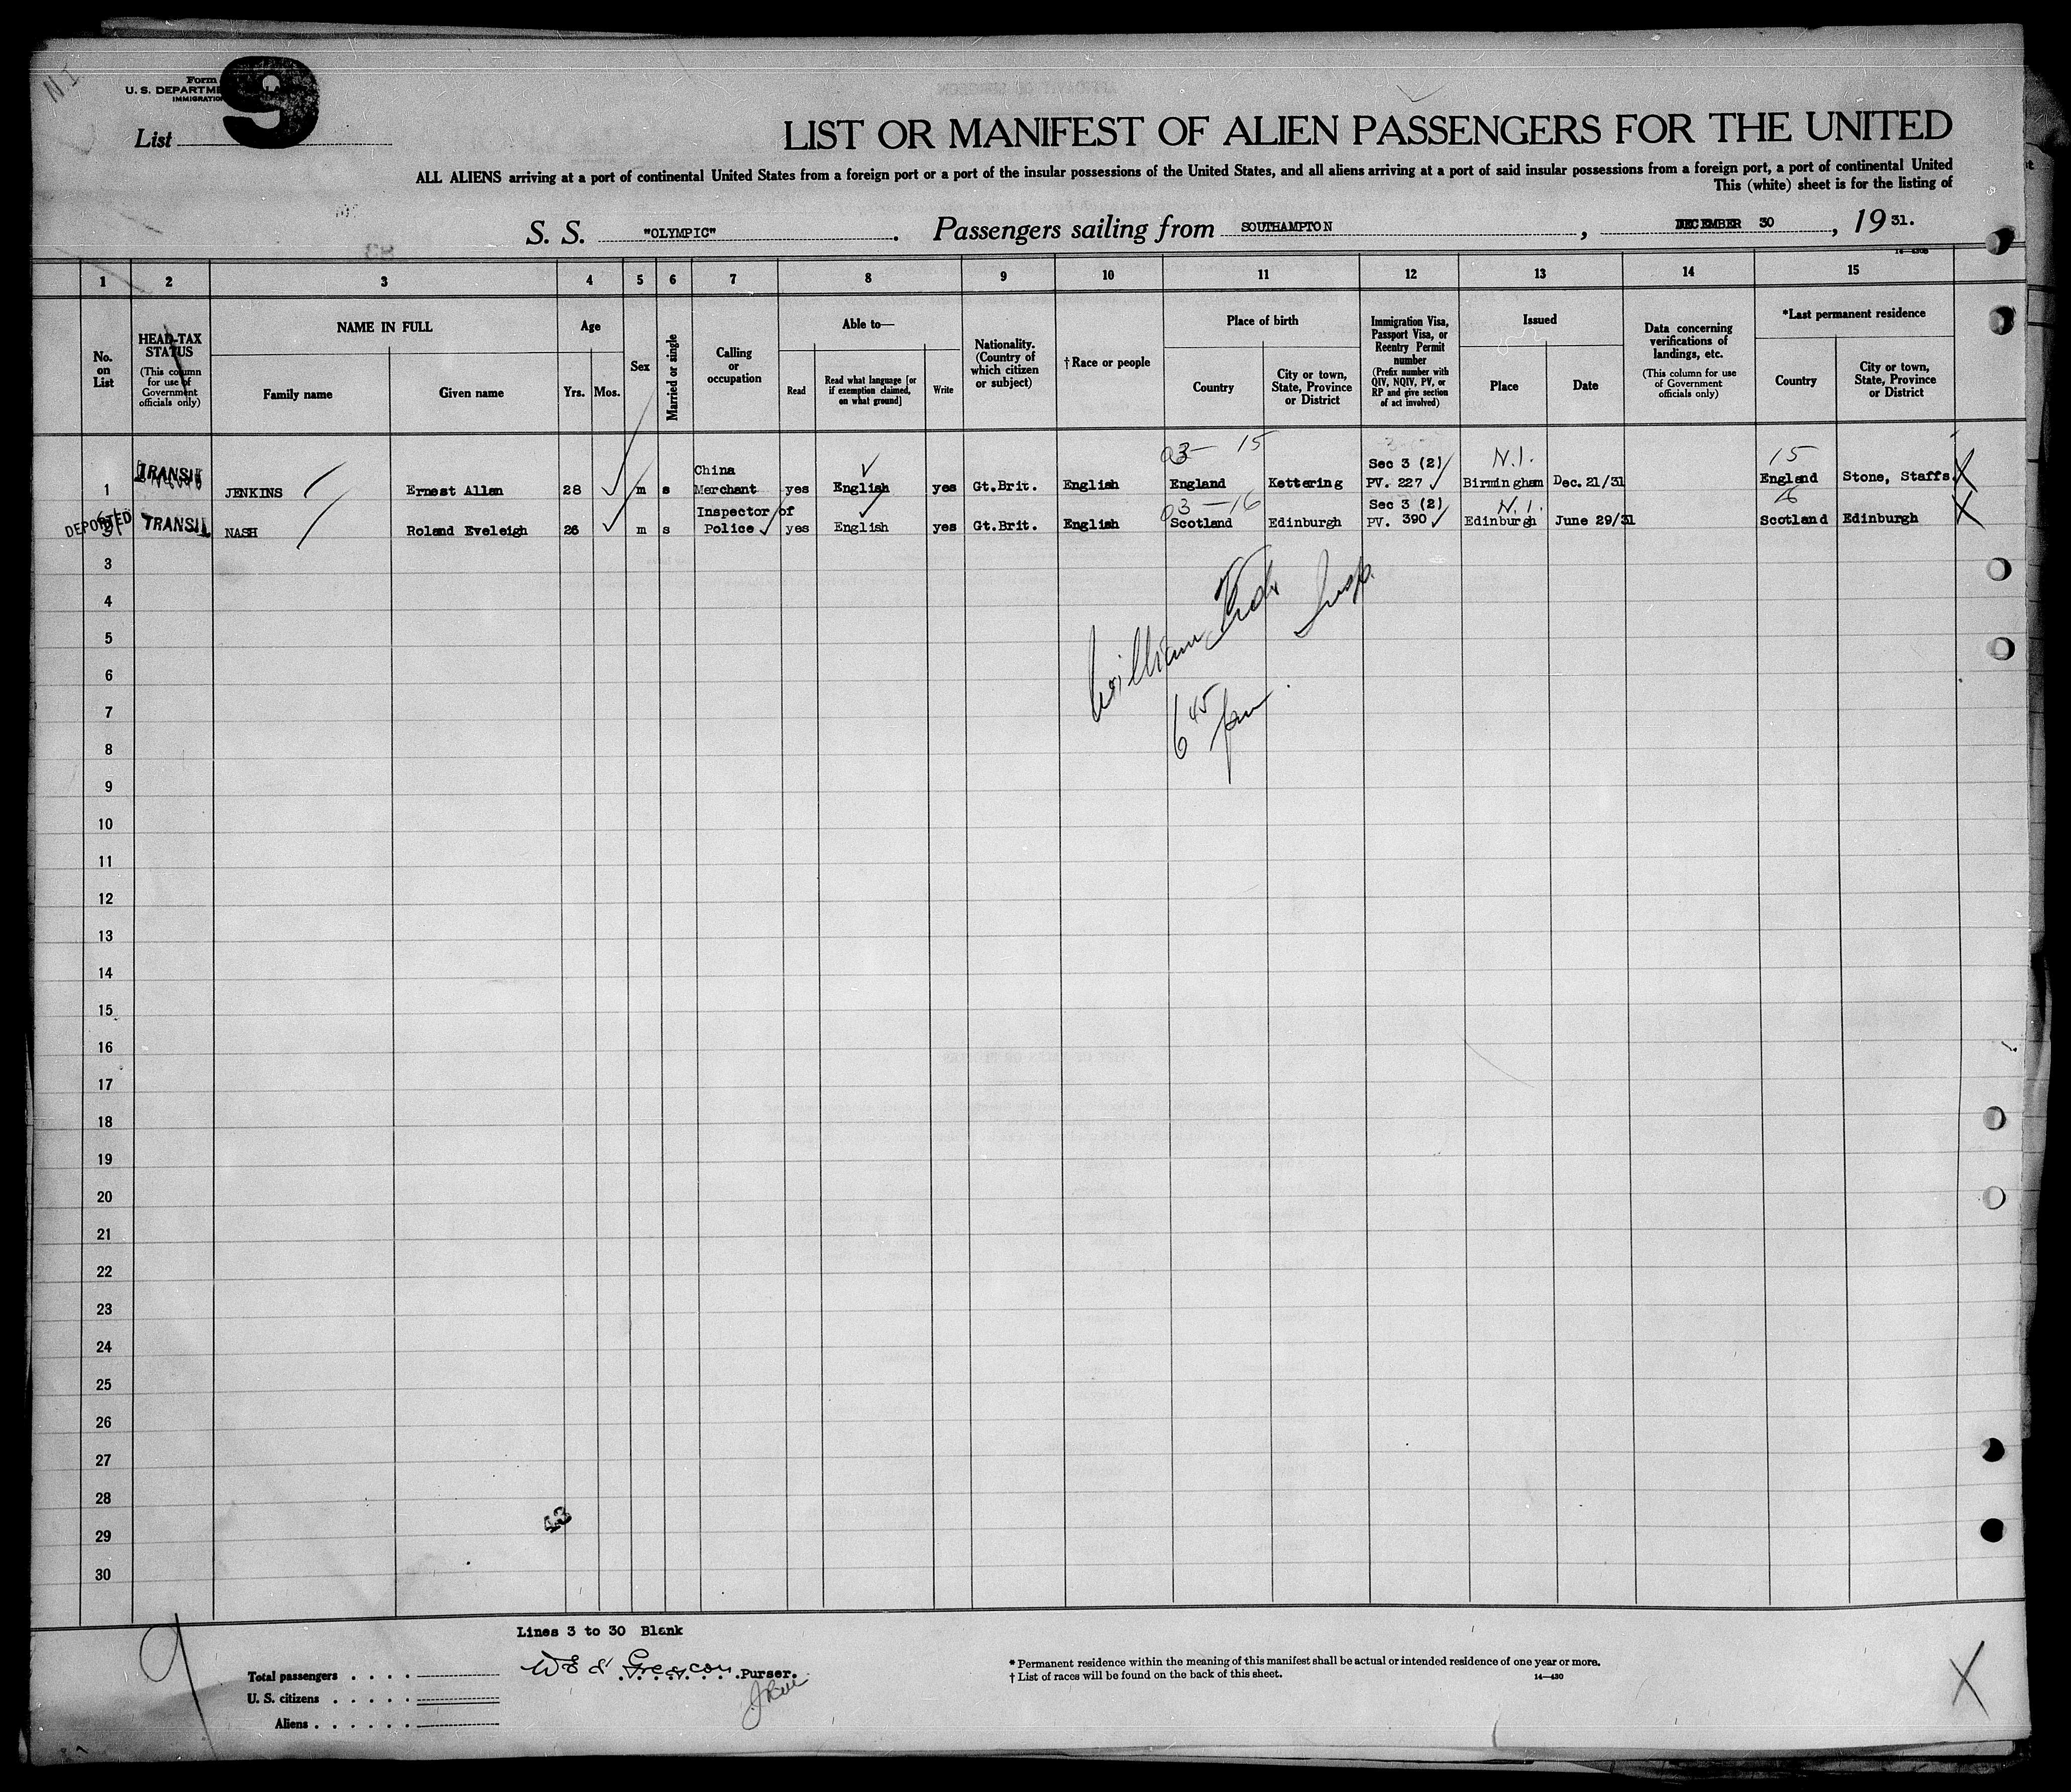 N I
Form
U. S. DEPARTME
IMMIGRATION
9
List
LIST OR MANIFEST OF ALIEN PASSENGERS FOR THE UNITED
ALL ALIENS arriving at a port of continental United States from a foreign port or a port of the insular possessions of the United States, and all aliens arriving at a port of said insular possessions from a foreign port, a port of continental United
This (white) sheet is for the listing of
S. S. "OLYMPIC". Passengers sailing from SOUTHAMPTON, DECEMBER 30, 1931.
1 2 3 4 5 6 7 8 9 10 11 12 13 14 15
No. on List
HEAD-TAX STATUS
(This column for use of Government officials only)
NAME IN FULL
Family name
Given name
Age
Yrs.
Mos.
Sex
Married or single
Calling or occupation
Able to—
Read
Read what language [or if exemption claimed, on what ground]
Write
Nationality. (Country of which citizen or subject)
†Race or people
Place of birth
Country
City or town, State, Province or District
Immigration Visa, Passport Visa, or Reentry Permit number
(Prefix number with QIV, NQIV, PV, or RP and give section of act involved)
Issued
Place
Date
Data concerning verifications of landings, etc.
(This column for use of Government officials only)
*Last permanent residence
Country
City or town, State, Province or District
03— 15 N.I. 15
1 TRANSIT JENKINS Ernest Allan 28 m s China Merchant yes English yes Gt.Brit. English England Kettering Sec 3 (2) PV. 227 Birmingham Dec. 21/31 England Stone, Staffs X
03—16 N.I.
DEPORTED TRANSIT NASH Roland Eveleigh 26 m s Inspector of Police yes English yes Gt.Brit. English Scotland Edinburgh Sec 3 (2) PV. 390 Edinburgh June 29/31 Scotland Edinburgh X
3
4
William Insp.
5
6
7
6 45 pm
8
9
10
11
12
13
14
15
16
17
18
19
20
21
22
23
24
25
26
27
28
29
30
43
Lines 3 to 30 Blank
9
Total passengers
U. S. citizens
Aliens
Purser.
* Permanent residence within the meaning of this manifest shall be actual or intended residence of one year or more.
† List of races will be found on the back of this sheet.
14—430
X